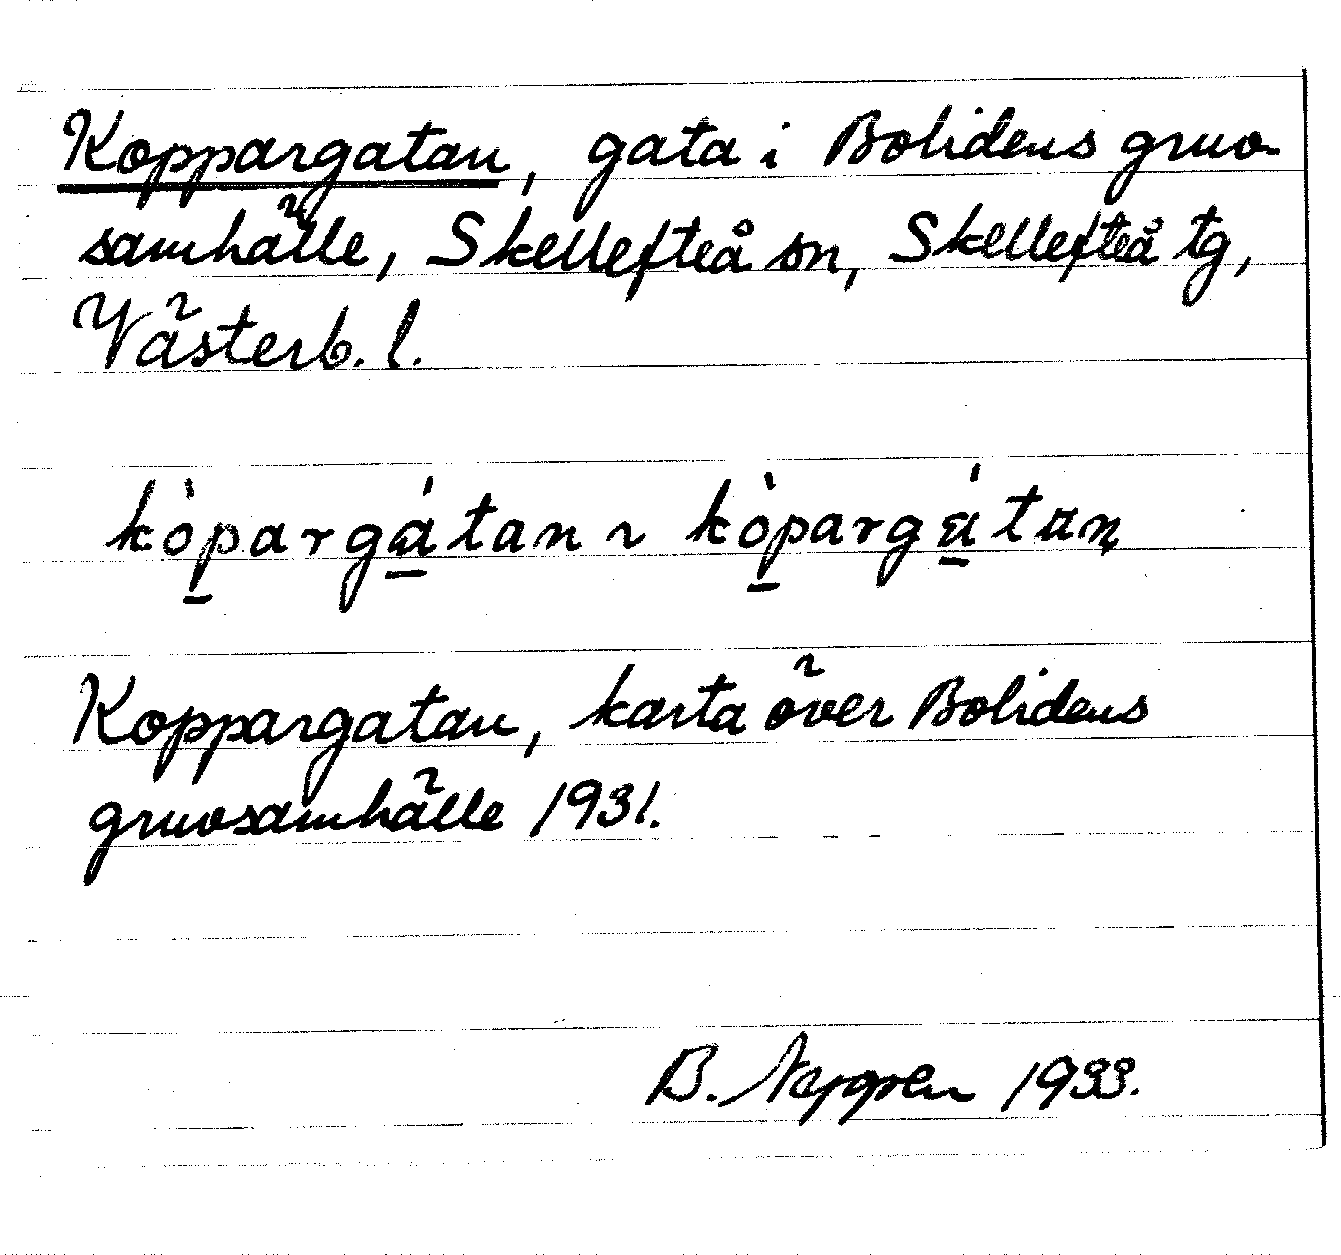 Koppargatan, gata i Bolidens gruv-
samhälle, Skellefteå sn, Skellefteå tg,
Västerb. l.
kòpargátan ~ kòpargátan
Koppargatan, karta över Bolidens
gruvsamhälle 1931.
B. 1933.